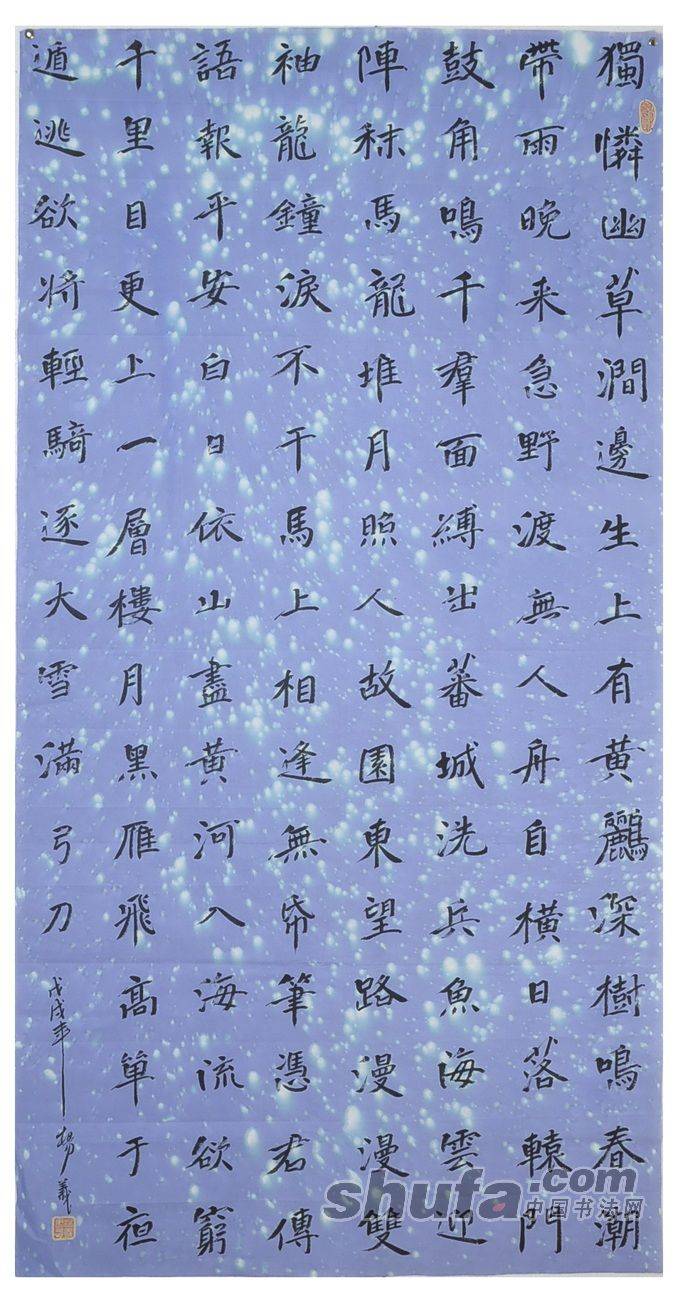 獨憐幽草澗邊生上有黄鸝深樹鳴春潮
帶雨晚来急野渡無人舟自横日落轅門
鼓角鳴千羣面縛出蕃城洗兵魚海雲迎
陣秣馬龍堆月照人故園東望路漫漫雙
袖龍鐘淚不干馬上相逢無帋筆憑君傳
語報平安白日依山盡黄河入海流欲窮
千里目更上一層樓月黑雁飛高單于夜
遁逃欲将輕騎逐大雪滿弓刀
戊戌年
shufa.com
中国书法网